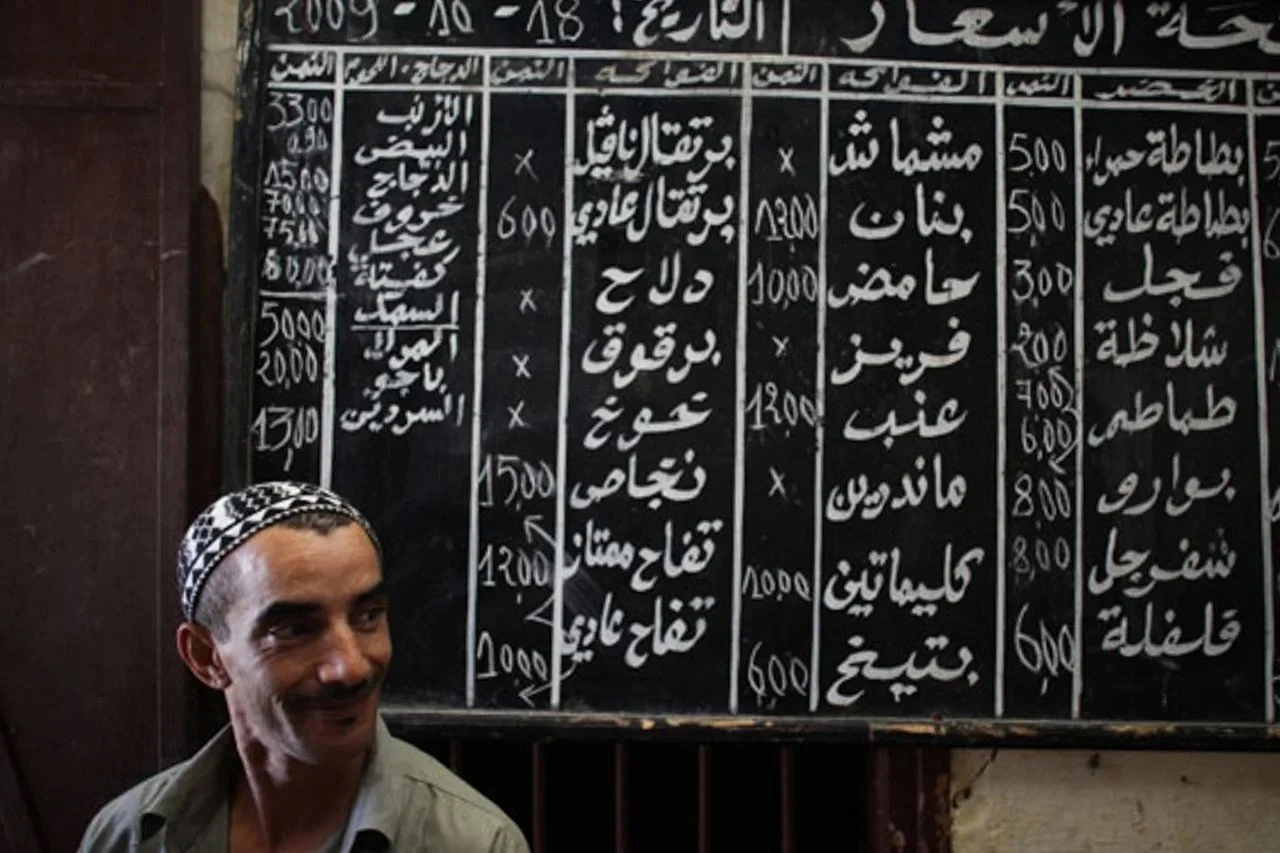 الأسعار التاريخ: 18 - 10 - 2009
الخضر الثمن الفواكه الثمن الفواكه الثمن الدجاج، اللحوم الثمن
بطاطة حمراء 5,00 مشماش x برتقال ناڤيل x
بطاطة عادي 5,00 بنان 13,00 برتقال عادي 6,00
فجل 3,00 حامض 10,00 دلاح x
شلاظة 2,00 فريز x برقوق x
طماطم 7,00 6,00 عنب 12,00 خوخ x
بوارو 8,00 ماندرين x نجاص 15,00
سفرجل 8,00 كليماتين 10,00 تفاح ممتاز 12,00
فلفلة 6,00 بتيخ 6,00 تفاح عادي 10,00
الأرنب 33,00
البيض 0,90
الدجاج 15,00
خروف 70,00
عجل 75,00
كفتة 80,00
السمك
50,00
باجو 20,00
السردين 13,00